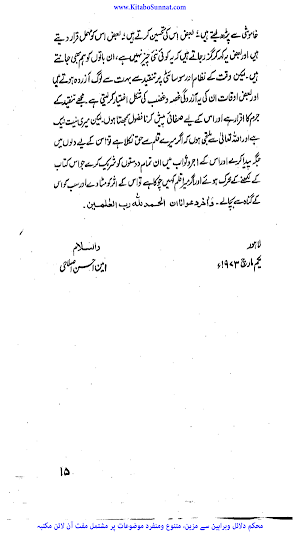 www.KitaboSunnat.com
خاموشی سے پڑھ لیتے ہیں، بعض اس کی تحسین کرتے ہیں، بعض اس کو مہمل قرار دیتے
ہیں، اور بعض یہ کہہ کر گزر جاتے ہیں کہ یہ کوئی نئی چیز نہیں ہے، ان باتوں کو ہم بھی جانتے
ہیں۔ لیکن وقت کے نظام اور سوسائٹی پر تنقید سے بہت سے لوگ آزردہ ہوتے ہیں
اور بعض اوقات ان کی یہ آزردگی غصہ و غضب کی شکل اختیار کر لیتی ہے۔ مجھے تنقید کے
جرم کا اقرار ہے اور اس کے لیے صفائی پیش کرنا فضول سمجھتا ہوں۔ لیکن میری نیت نیک
ہے اور اللہ تعالیٰ سے ملتجی ہوں کہ اگر میرے قلم سے حق نکلا ہے تو اس کے لیے دلوں میں
جگہ پیدا کرے اور اس کے اجر و ثواب میں ان تمام دوستوں کو شریک کرے جو اس کتاب
کے لکھنے کے محرک ہوئے اور اگر میرا قلم کہیں چوکا ہے تو اس کے اثر کو مٹا دے اور سب کو اس
کے گناہ سے بچا لے۔ وآخر دعوانا ان الحمد للہ رب العلمین۔
لاہور
والسلام
یکم مارچ ۱۹۷۳ء
امین احسن اصلاحی
۱۵
محکم دلائل وبراہین سے مزین، متنوع ومنفرد موضوعات پر مشتمل مفت آن لائن مکتبہ